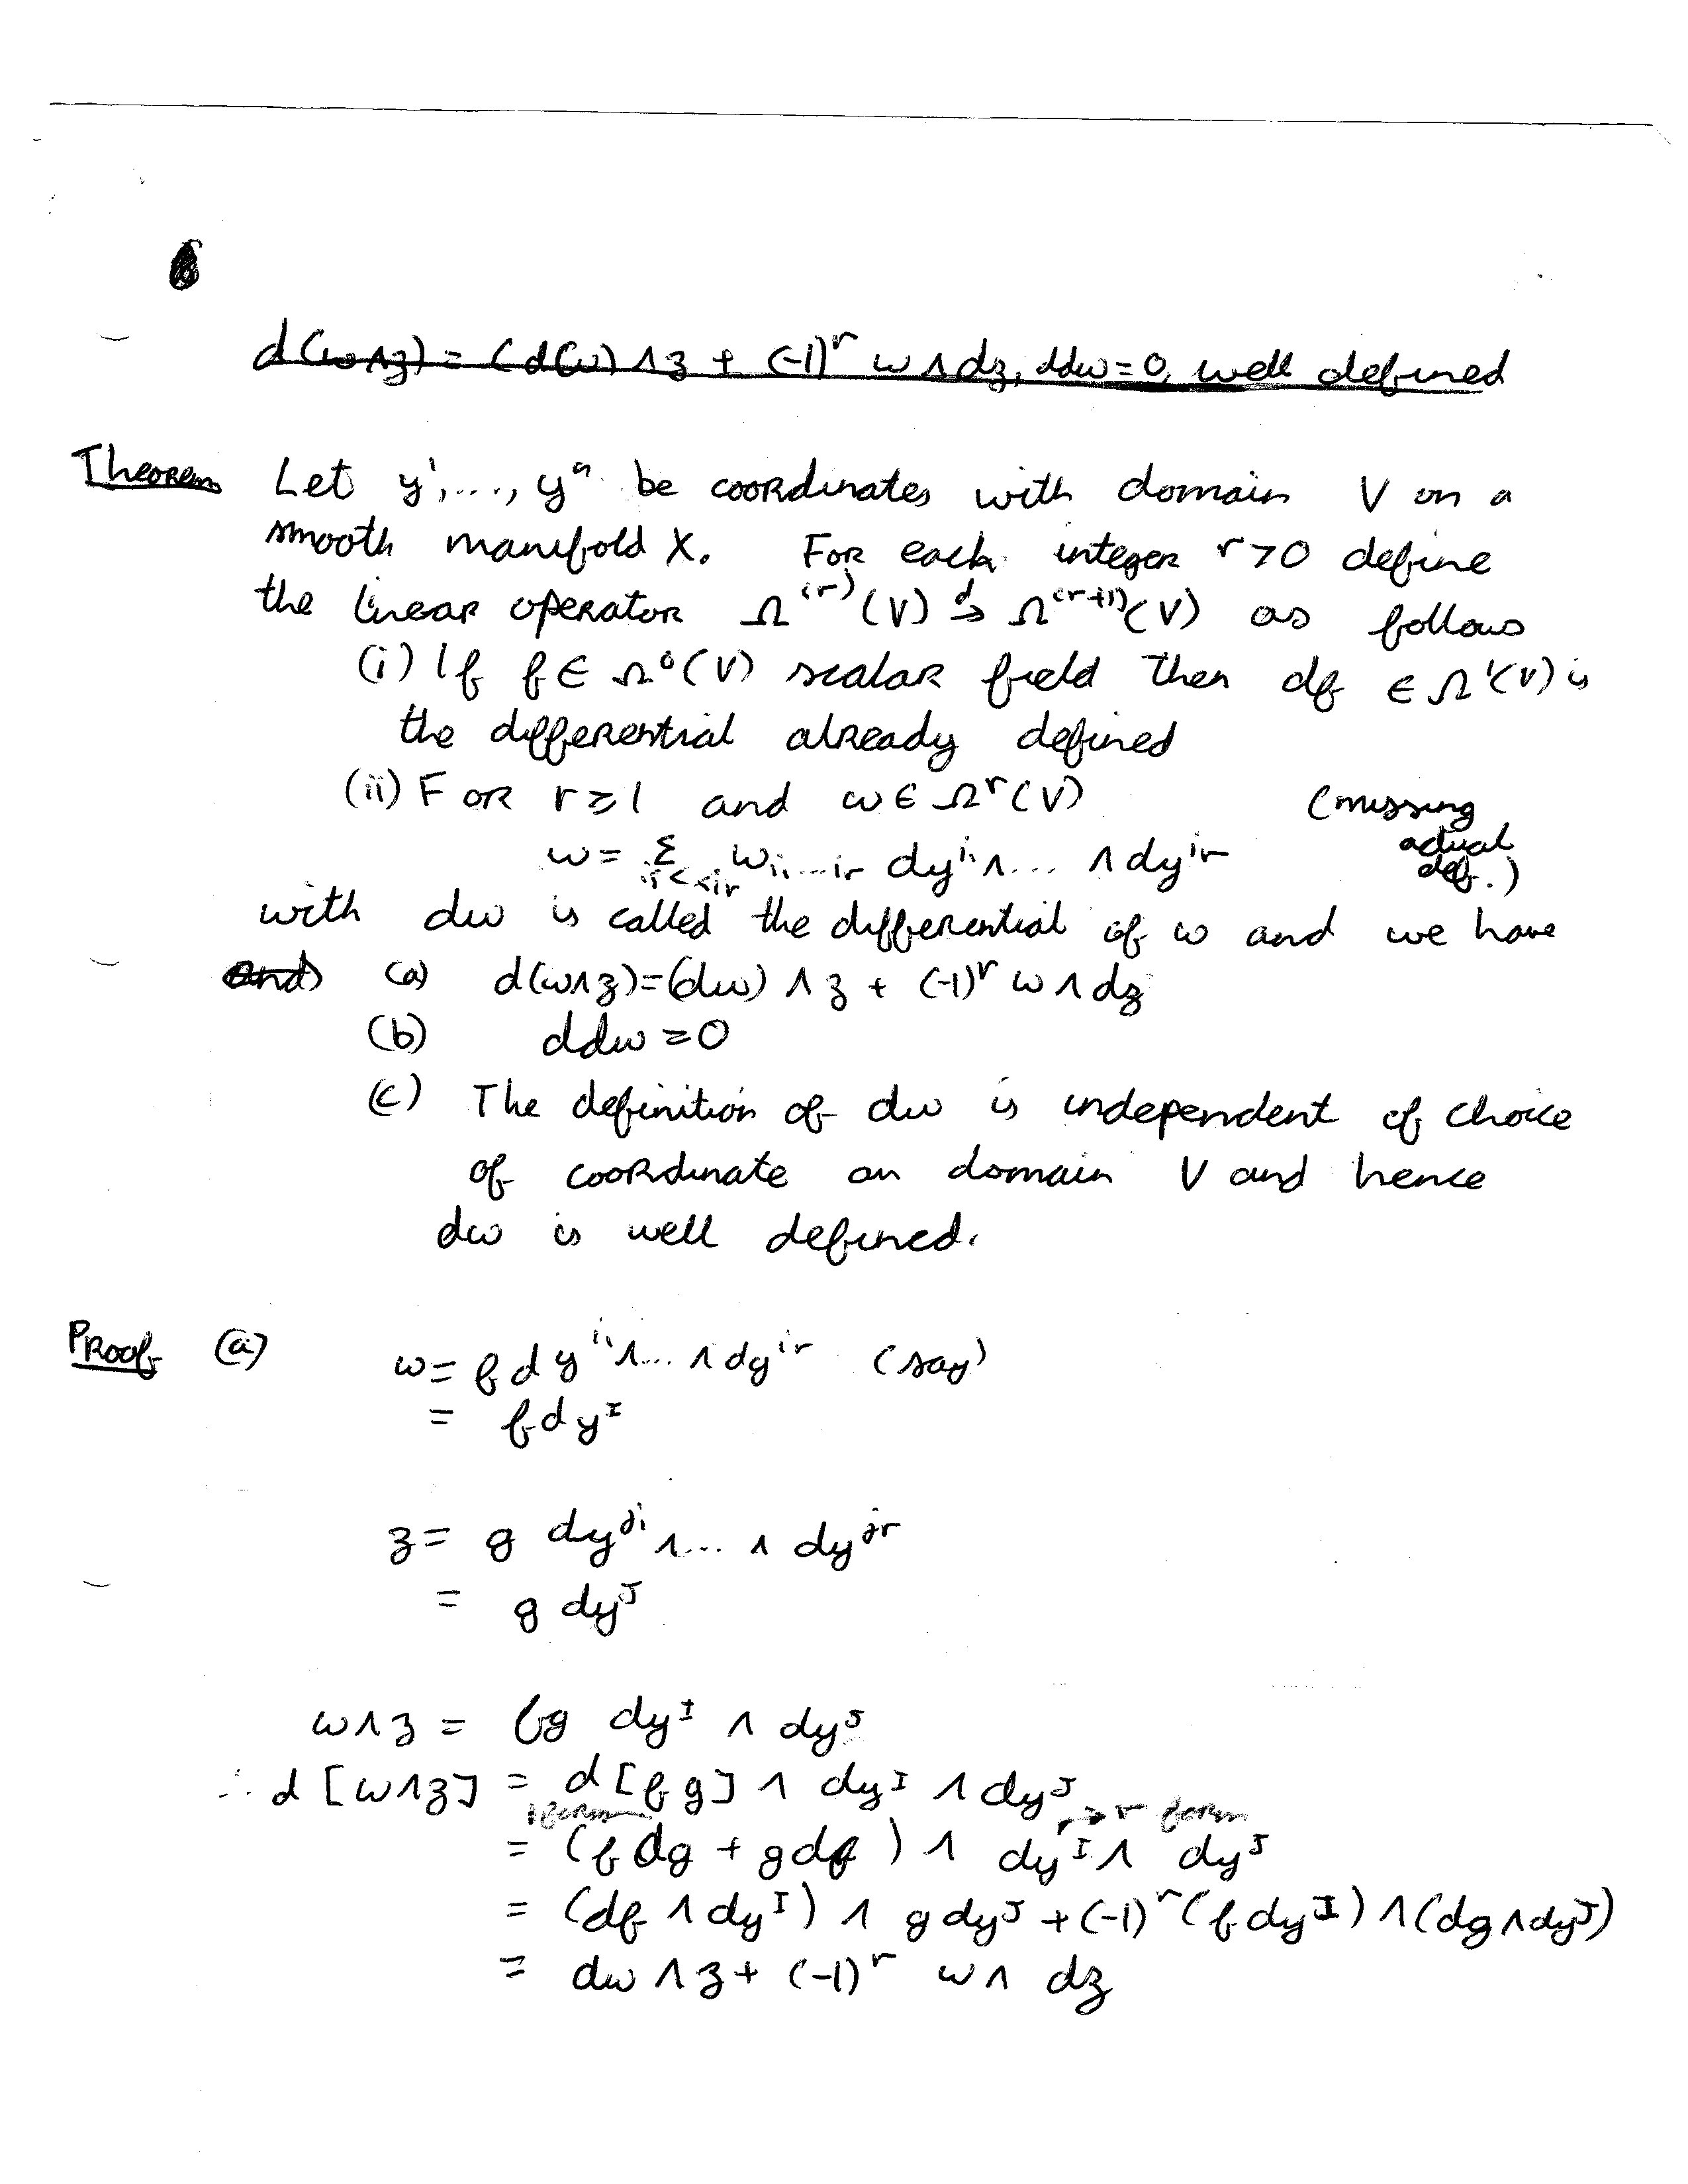 d(ω∧z) = (dω) ∧ z + (-1)^r ω ∧ dz, ddω = 0, well defined
Theorem Let y^1, ..., y^n be coordinates with domain V on a
smooth manifold X. For each integer r > 0 define
the linear operator Ω^(r) (V) →^d Ω^(r+1) (V) as follows
(i) If f ∈ Ω^0 (V) scalar field then df ∈ Ω^1 (V) is
the differential already defined
(ii) For r ≥ 1 and ω ∈ Ω^r (V) (missing
actual
def.)
ω = Σ_{i_1<..<i_r} ω_{i_1...i_r} dy^{i_1} ∧ ... ∧ dy^{i_r}
with dω is called the differential of ω and we have
and (a) d(ω∧z) = (dω) ∧ z + (-1)^r ω ∧ dz
(b) ddω = 0
(c) The definition of dω is independent of choice
of coordinate on domain V and hence
dω is well defined.
Proof (a) ω = f dy^{i_1} ∧ ... ∧ dy^{i_r} (say)
= f dy^I
z = g dy^{j_1} ∧ ... ∧ dy^{j_r}
= g dy^J
ω∧z = fg dy^I ∧ dy^J
∴ d [ω∧z] = d [f g] ∧ dy^I ∧ dy^J
1 form → r form
= (f dg + g df) ∧ dy^I ∧ dy^J
= (df ∧ dy^I) ∧ g dy^J + (-1)^r (f dy^I) ∧ (dg ∧ dy^J)
= dω ∧ z + (-1)^r ω ∧ dz